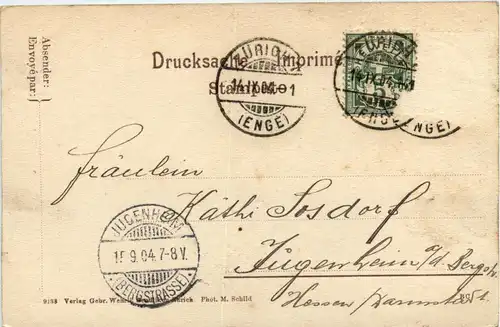 Absender:
Envoyé par:
Drucksache Imprimé
Stampa
ZÜRICH
14.IX.04–1
(ENGE)
ZÜRICH
14.IX.04
(ENGE)
5
Fräulein
Käthi Sosdorf
Jugenheim a/d Bergstr.
Hessen / Darmstadt
JUGENHEIM
15.9.04.7-8V.
(BERGSTRASSE)
9158 Verlag Gebr. Zürich Phot. M. Schild